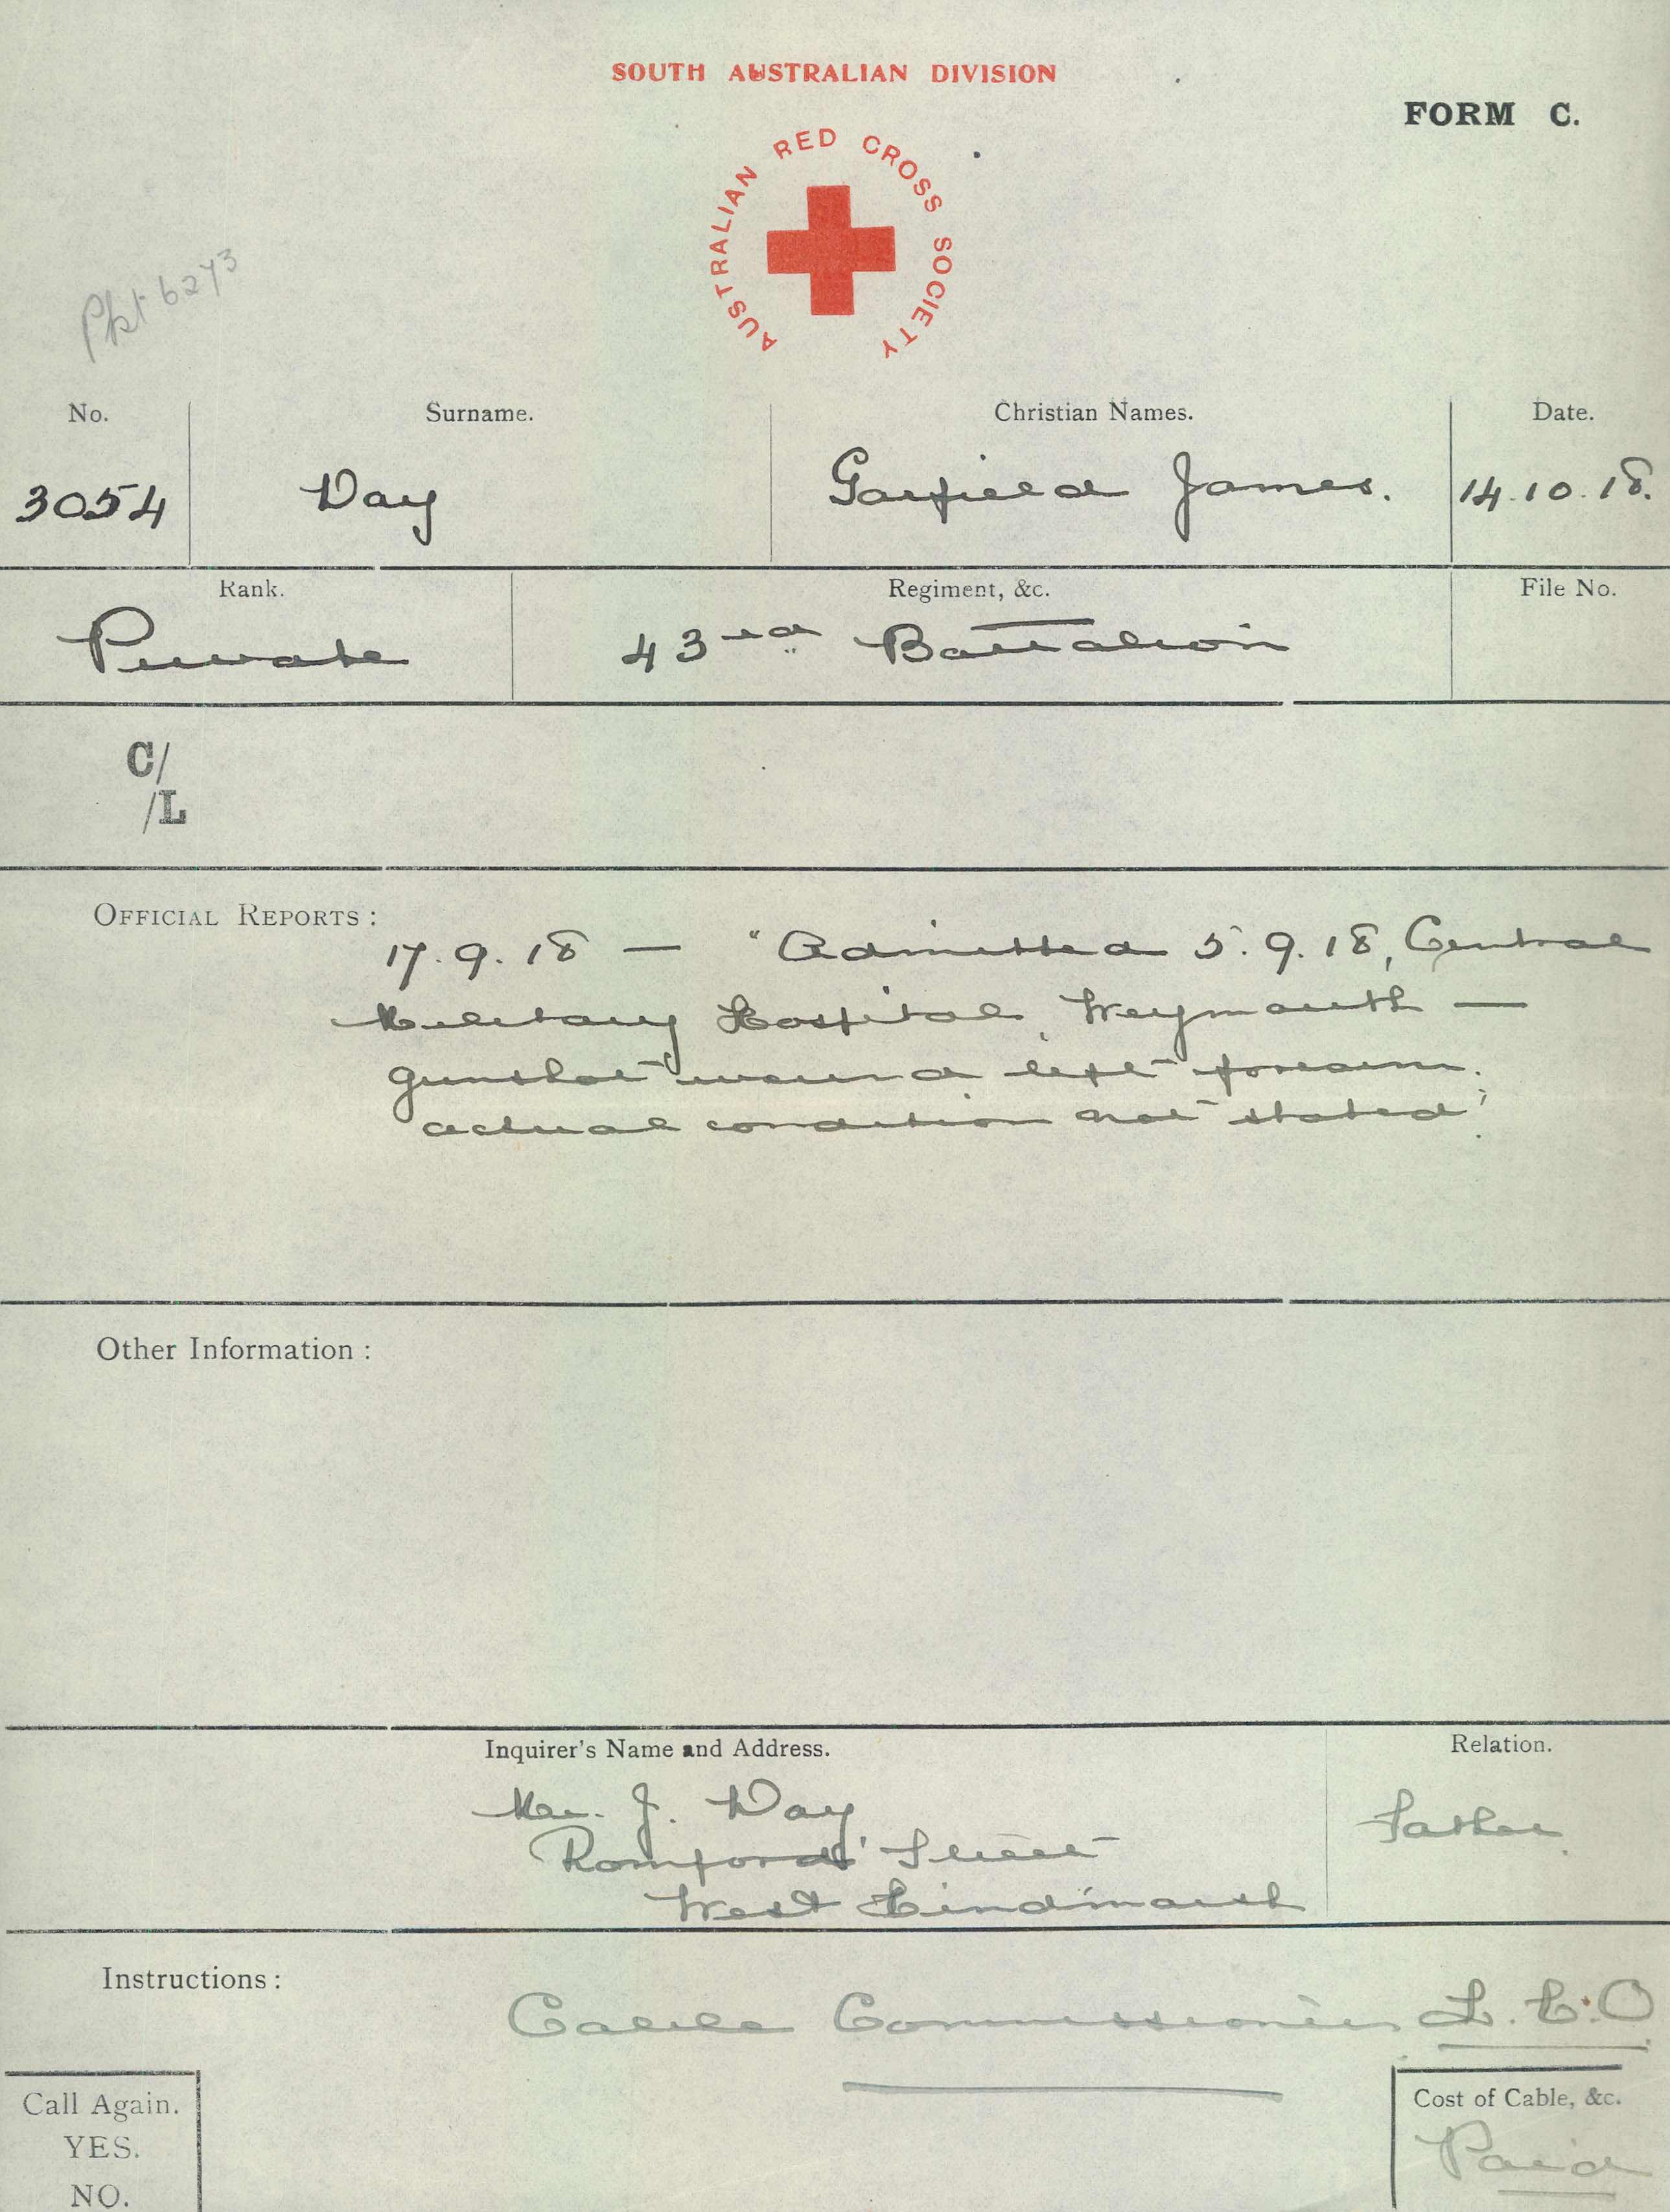 SOUTH AUSTRALIAN DIVISION
FORM C.
AUSTRALIAN RED CROSS SOCIETY
Pkt 6273
No. Surname. Christian Names. Date.
3054 Day Garfield James. 14.10.18.
Rank. Regiment, &c. File No.
Private 43rd Battalion
C/
/L
OFFICIAL REPORTS :
17.9.18 — "Admitted 5.9.18, Central
Military Hospital, Weymouth —
gunshot wound left forearm.
actual condition not stated."
Other Information :
Inquirer's Name and Address. Relation.
Mr. J. Day
Father
Romford Street
West Hindmarsh
Instructions :
Cable Commissioner
Call Again.
YES.
NO.
Cost of Cable, &c.
Paid